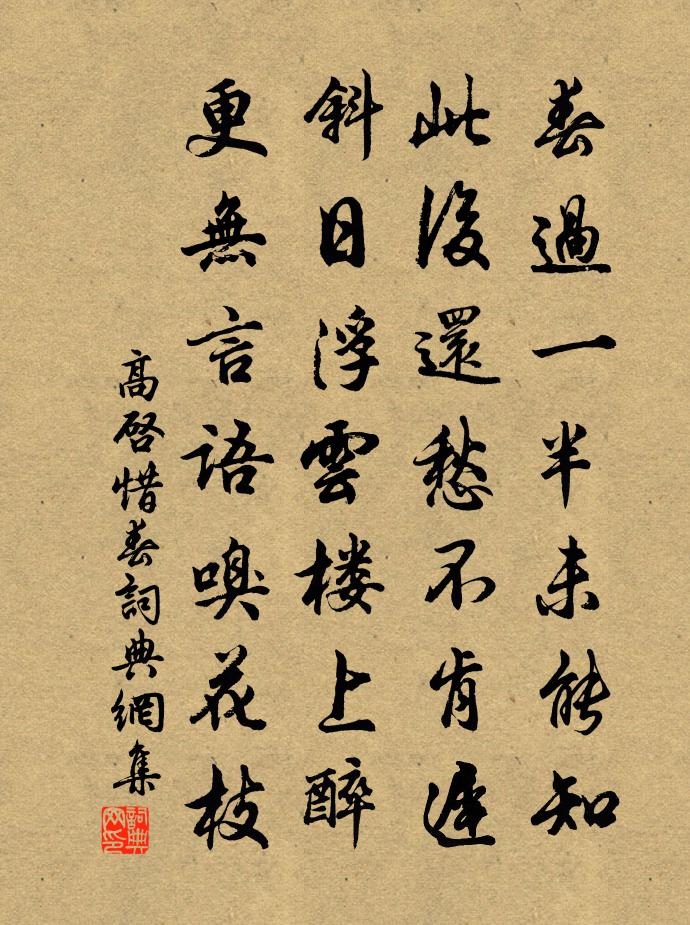 春過一半未能知
此後還愁不肯遲
斜日浮雲楼上醉
更無言語嗅花枝
高啓惜春詞典網集
詞典網印